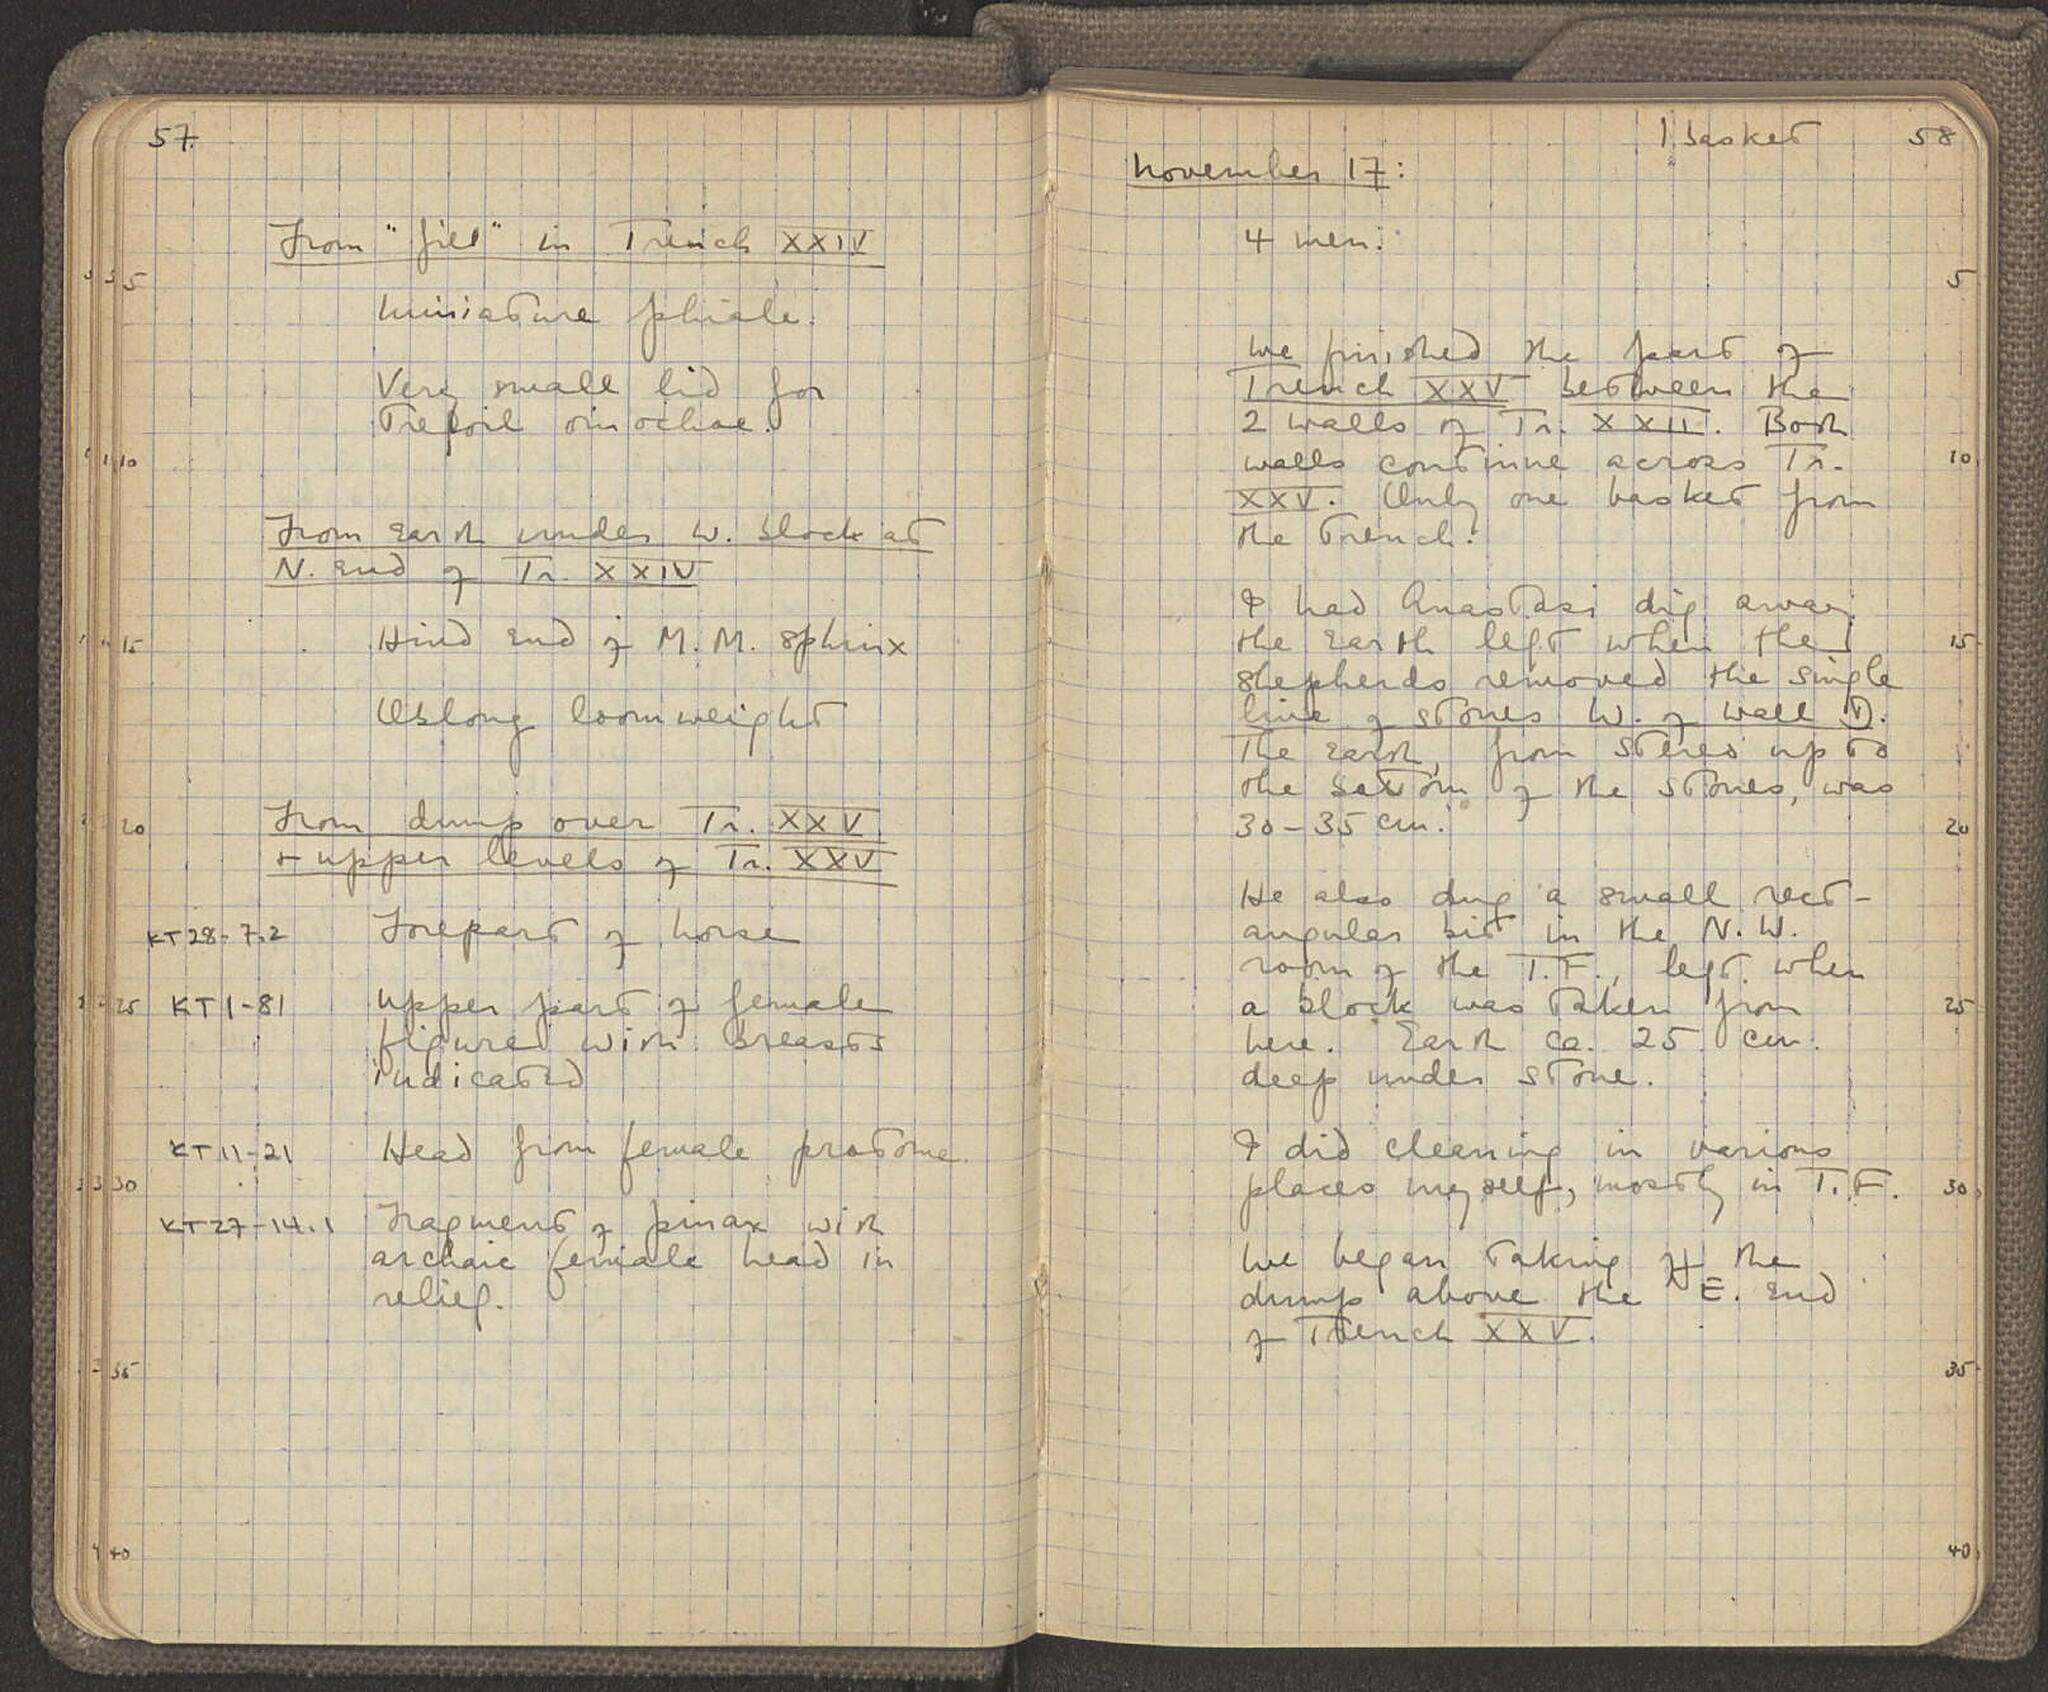 57.
From "fill" in Trench XXIV
5
Miniature phiale.
Very small lid for
trefoil oinochoe.
10
From earth under W. block at
N. end of Tr. XXIV
15
Hind end of M. M. sphinx
Oblong loomweight
From dump over Tr. XXV
20
+ upper levels of Tr. XXV
KT28-7.2 Forepart of horse
25
KT1-81 Upper part of female
figure with breasts
indicated
KT11-21 Head from female protome.
30
KT27-14.1 Fragment of pinax with
archaic female head in
relief.
35
40
1 basket 58
November 17:
4 men.
5
We finished the part of
Trench XXV between the
2 walls of Tr. XXII. Both
walls continue across Tr.
10
XXV. Only one basket from
the trench.
I had Anastasi dig away
the earth left when the
15
shepherds removed the single
line of stones W. of wall D.
The earth, from stereo up to
the bottom of the stones, was
30-35 cm.
20
He also dug a small rect-
angular bit in the N. W.
room of the T.F., left when
a block was taken from
25
here. Earth ca. 25 cm.
deep under stone.
I did cleaning in various
places myself, mostly in T. F.
30
We began taking off the
dump above the N E. end
of Trench XXV.
35
40